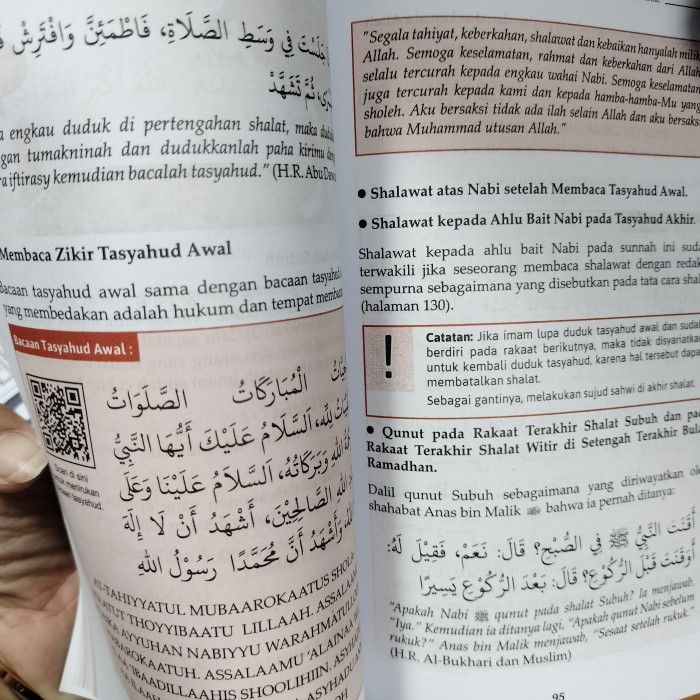 جَلَسْتَ فِي وَسَطِ الصَّلَاةِ، فَاطْمَئِنَّ وَافْتَرِشْ
ثُمَّ تَشَهَّدْ
engkau duduk di pertengahan shalat, maka
tumakninah dan dudukkanlah paha kirimu
iftirasy kemudian bacalah tasyahud." (H.R. Abu
Membaca Zikir Tasyahud Awal
Bacaan tasyahud awal sama dengan bacaan tasyahud
yang membedakan adalah hukum dan tempat
Bacaan Tasyahud Awal :
الْمُبَارَكَاتُ الصَّلَوَاتُ
لِلَّهِ، اَلسَّلَامُ عَلَيْكَ أَيُّهَا النَّبِيُّ
اللهِ وَبَرَكَاتُهُ، اَلسَّلَامُ عَلَيْنَا وَعَلَى
اللهِ الصَّالِحِيْنَ، أَشْهَدُ أَنْ لَا إِلَهَ
وَأَشْهَدُ أَنَّ مُحَمَّدًا رَسُوْلُ اللهِ
Scan di sini
menirukan
tasyahud.
AT-TAHIYYATUL MUBAAROKAATUS
THOYYIBAATU LILLAAH. ASSALAAMU
AYYUHAN NABIYYU WARAHMATULLOOHI
ASSALAAMU 'ALAINAA
'IBAADILLAAHIS SHOOLIHIIN.
"Segala tahiyat, keberkahan, shalawat dan kebaikan hanyalah milik
Allah. Semoga keselamatan, rahmat dan keberkahan dari Allah
selalu tercurah kepada engkau wahai Nabi. Semoga keselamatan
juga tercurah kepada kami dan kepada hamba-hamba-Mu yang
sholeh. Aku bersaksi tidak ada ilah selain Allah dan aku bersaksi
bahwa Muhammad utusan Allah."
● Shalawat atas Nabi setelah Membaca Tasyahud Awal.
● Shalawat kepada Ahlu Bait Nabi pada Tasyahud Akhir.
Shalawat kepada ahlu bait Nabi pada sunnah ini
terwakili jika seseorang membaca shalawat dengan
sempurna sebagaimana yang disebutkan pada tata cara
(halaman 130).
! Catatan: Jika imam lupa duduk tasyahud awal dan sudah
berdiri pada rakaat berikutnya, maka tidak disyariatkan
untuk kembali duduk tasyahud, karena hal tersebut dapat
membatalkan shalat.
Sebagai gantinya, melakukan sujud sahwi di akhir shalat.
● Qunut pada Rakaat Terakhir Shalat Subuh dan
Rakaat Terakhir Shalat Witir di Setengah Terakhir
Ramadhan.
Dalil qunut Subuh sebagaimana yang diriwayatkan
shahabat Anas bin Malik bahwa ia pernah ditanya:
أَقَنَتَ النَّبِيُّ ﷺ فِي الصُّبْحِ؟ قَالَ: نَعَمْ، فَقِيْلَ لَهُ:
أَوَقَنَتَ قَبْلَ الرُّكُوْعِ؟ قَالَ: بَعْدَ الرُّكُوْعِ يَسِيْرًا
"Apakah Nabi ﷺ qunut pada shalat Subuh? Ia menjawab,
"Iya." Kemudian ia ditanya lagi, "Apakah qunut Nabi sebelum
rukuk?" Anas bin Malik menjawab, "Sesaat setelah rukuk."
(H.R. Al-Bukhari dan Muslim)
95